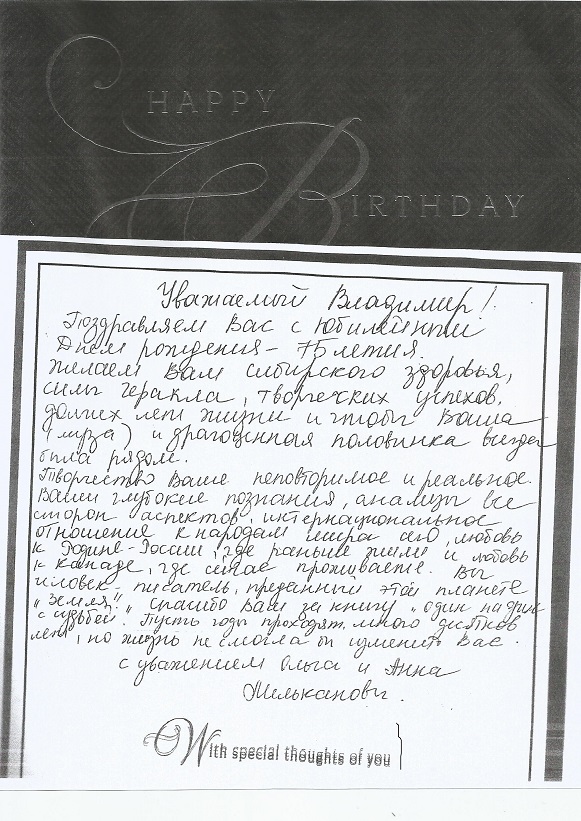 HAPPY
BIRTHDAY
Уважаемый Владимир!
Поздравляем Вас с юбилейным
Днем рождения - 75 летия.
Желаем Вам сибирского здоровья,
силы Геракла, творческих успехов,
долгих лет жизни и чтобы Ваша
(муза) и драгоценная половинка всегда
была рядом.
Творчество Ваше неповторимое и реальное.
Ваши глубокие познания, анализы все
сторон аспектов, интернациональное
отношение к народам мира сего, любовь
к Родине-России, где раньше жили и любовь
к Канаде, где сейчас проживаете. Вы
человек-писатель, преданный этой планете
"Земля". Спасибо Вам за книгу "один на один
с судьбой. Пусть годы проходят, много десятков
лет, но жизнь не смогла бы изменить Вас.
с уважением Ольга и Анна
Мелькановы.
With special thoughts of you